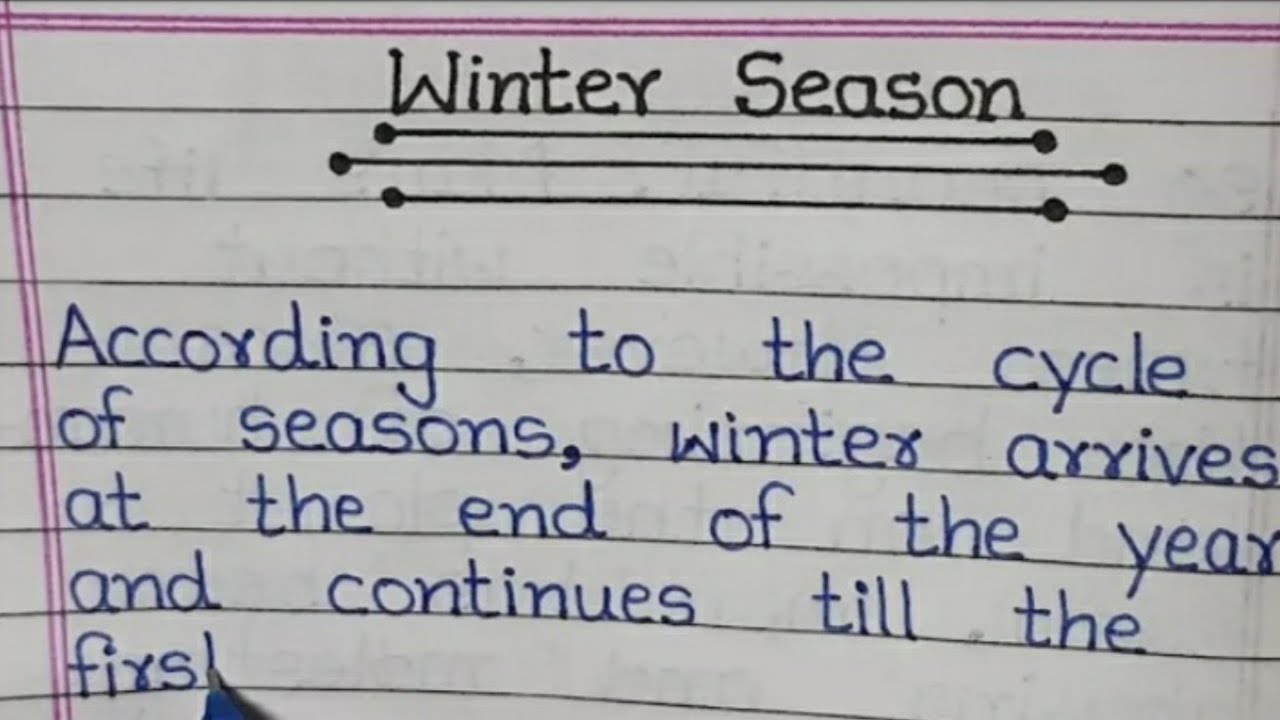 Winter Season
According to the cycle
of seasons, winter arrives
at the end of the year
and continues till the
firs